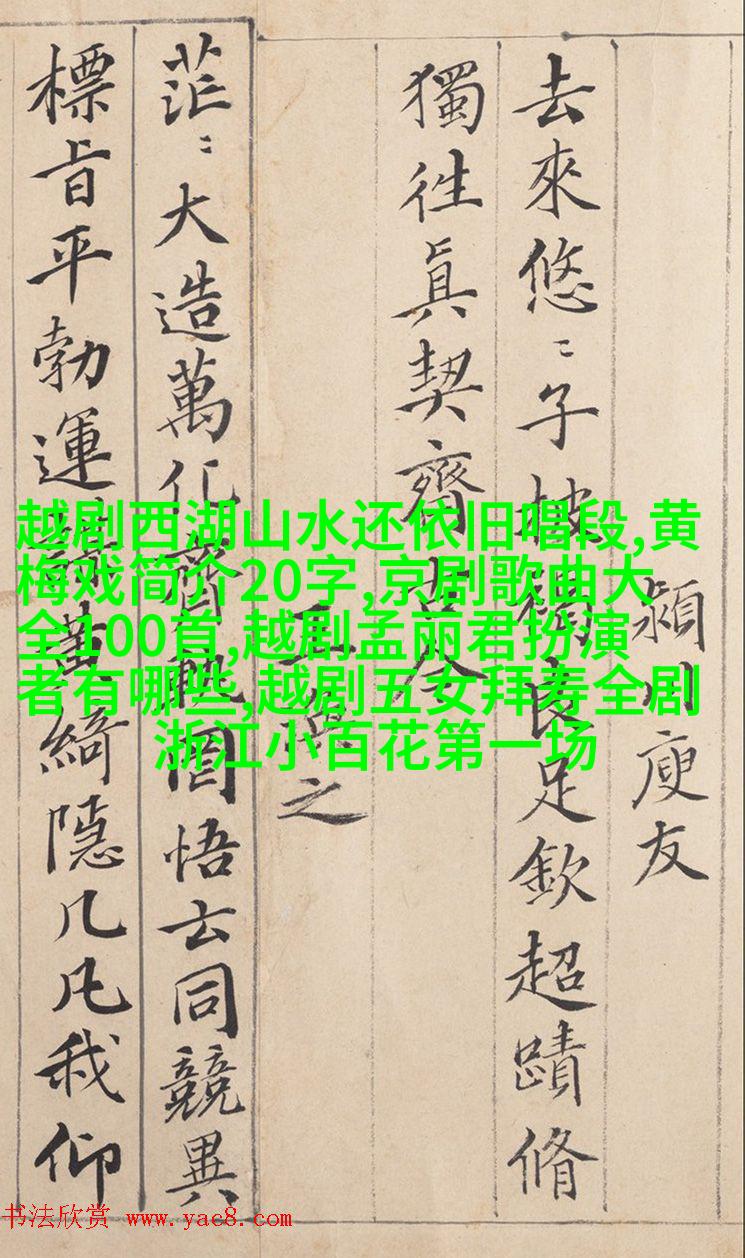 潁川庾友
去來悠〻子披褐良足欽超蹟脩
獨徃真契齊古今
王之
茫〻大造萬化齊軌罔悟玄同競異
標旨平勃運謀黃綺隱几凡我仰
越剧西湖山水还依旧唱段,黄
梅戏简介20字,京剧歌曲大
全100首,越剧孟丽君扮演
者有哪些,越剧五女拜寿全剧
浙江小百花第一场
书法欣赏 www.yac8.com